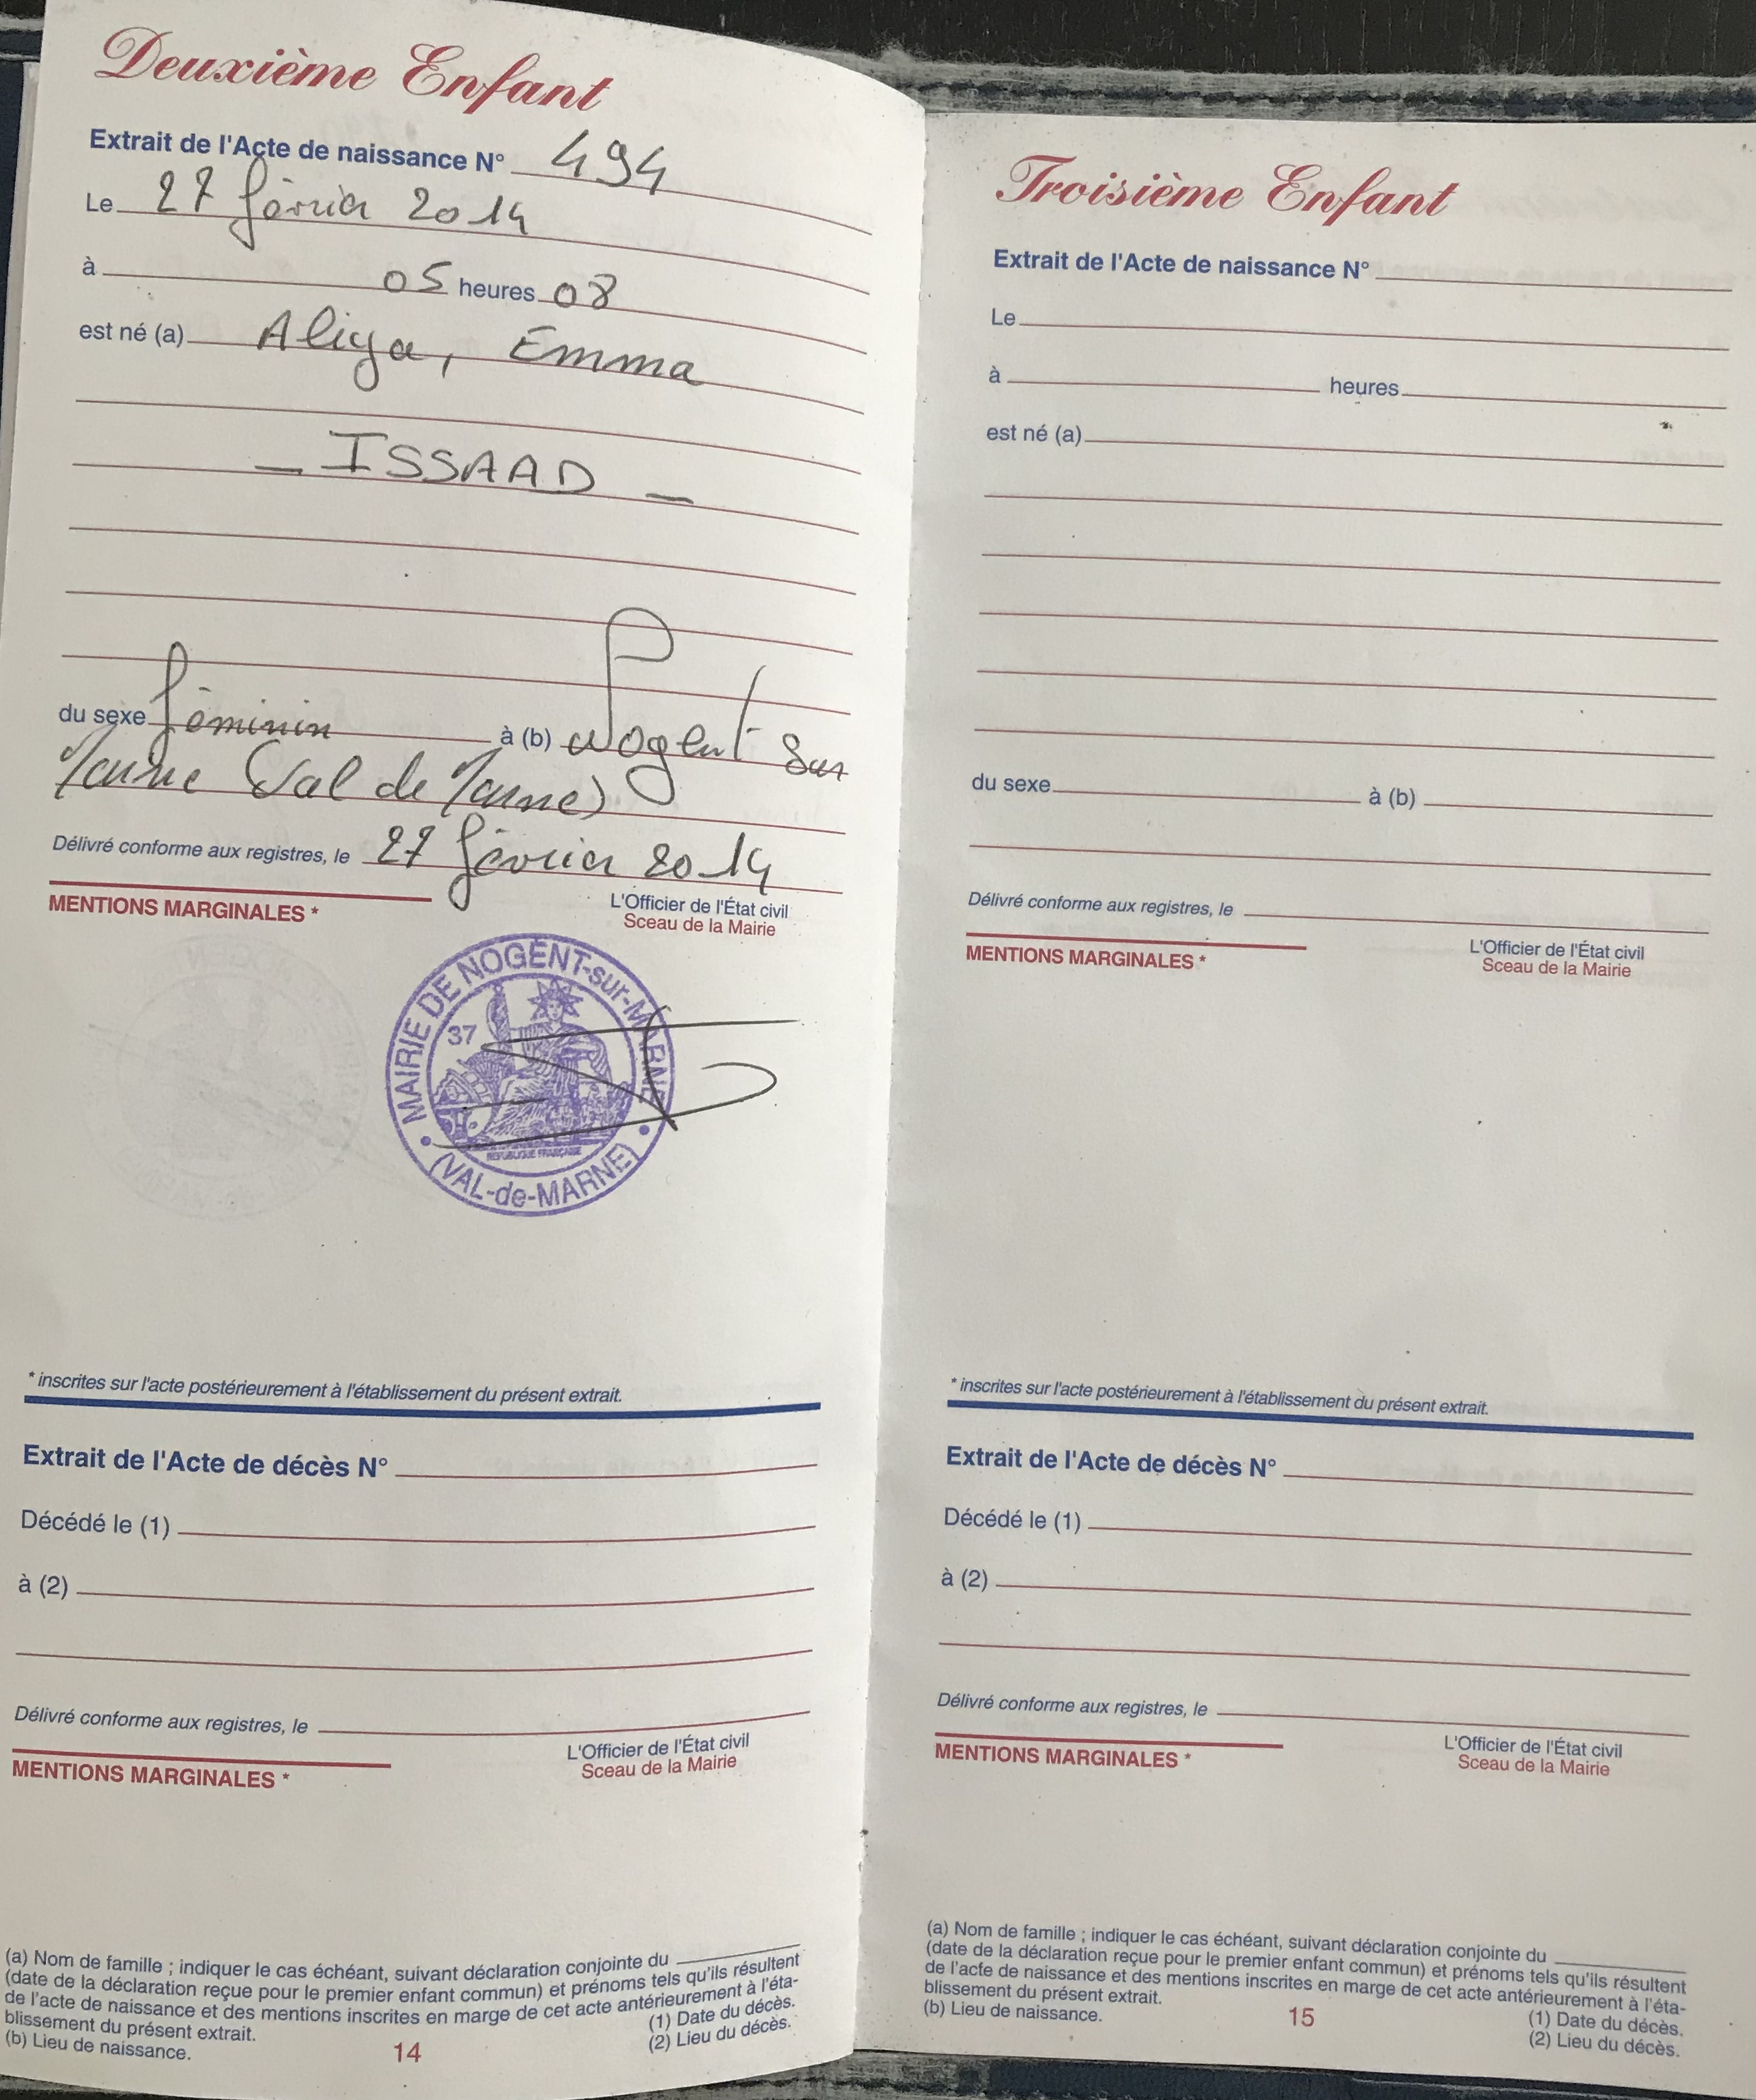 Deuxième Enfant
Extrait de l'Acte de naissance N° 494
Le 27 février 2014
à 05 heures 08
est né (a) Aliya, Emma
_ ISSAAD _
du sexe féminin à (b) Nogent Sur
Marne (Val de Marne)
Délivré conforme aux registres, le 27 février 2014
MENTIONS MARGINALES *
L'Officier de l'État civil
Sceau de la Mairie
MAIRIE DE NOGENT-sur-MARNE
37
RÉPUBLIQUE FRANÇAISE
(VAL-de-MARNE)
* inscrites sur l'acte postérieurement à l'établissement du présent extrait.
Extrait de l'Acte de décès N°
Décédé le (1)
à (2)
Délivré conforme aux registres, le
MENTIONS MARGINALES *
L'Officier de l'État civil
Sceau de la Mairie
(a) Nom de famille ; indiquer le cas échéant, suivant déclaration conjointe du
(date de la déclaration reçue pour le premier enfant commun) et prénoms tels qu'ils résultent
de l'acte de naissance et des mentions inscrites en marge de cet acte antérieurement à l'éta-
blissement du présent extrait.
(1) Date du décès.
(b) Lieu de naissance.
(2) Lieu du décès.
14
Troisième Enfant
Extrait de l'Acte de naissance N°
Le
à heures
est né (a)
du sexe à (b)
Délivré conforme aux registres, le
MENTIONS MARGINALES *
L'Officier de l'État civil
Sceau de la Mairie
* inscrites sur l'acte postérieurement à l'établissement du présent extrait.
Extrait de l'Acte de décès N°
Décédé le (1)
à (2)
Délivré conforme aux registres, le
MENTIONS MARGINALES *
L'Officier de l'État civil
Sceau de la Mairie
(a) Nom de famille ; indiquer le cas échéant, suivant déclaration conjointe du
(date de la déclaration reçue pour le premier enfant commun) et prénoms tels qu'ils résultent
de l'acte de naissance et des mentions inscrites en marge de cet acte antérieurement à l'éta-
blissement du présent extrait.
(1) Date du décès.
(b) Lieu de naissance.
(2) Lieu du décès.
15